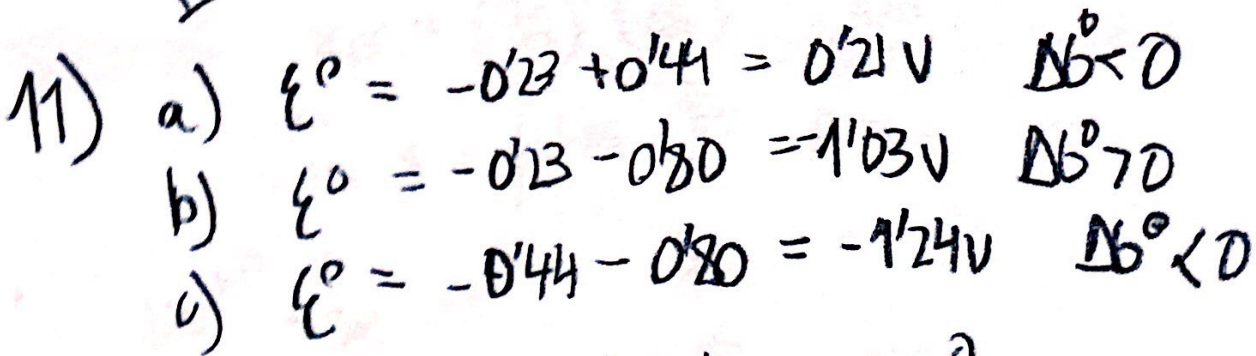 11) a) ε⁰ = -0'23 + 0'44 = 0'21 V ΔG⁰ < 0
b) ε⁰ = -0'23 - 0'80 = -1'03 V ΔG⁰ > 0
c) ε⁰ = -0'44 - 0'80 = -1'24 V ΔG⁰ < 0